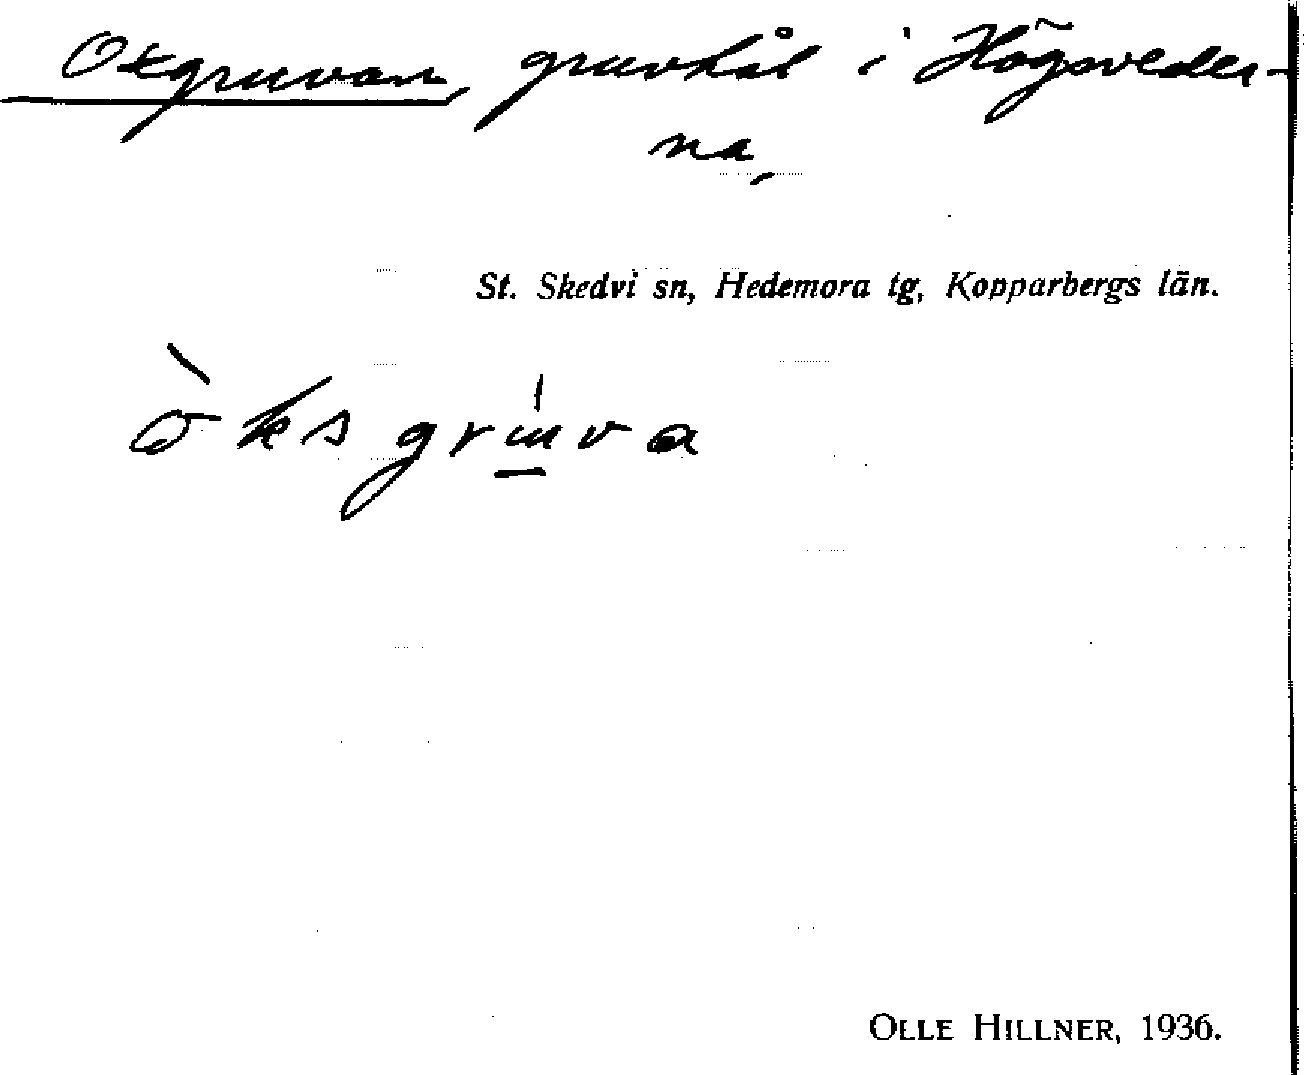 Okgruvan, gruvhål i Högsveder-
na,
St. Skedvi sn, Hedemora tg, Kopparbergs län.
òksgrɯ̱́va
OLLE HILLNER, 1936.